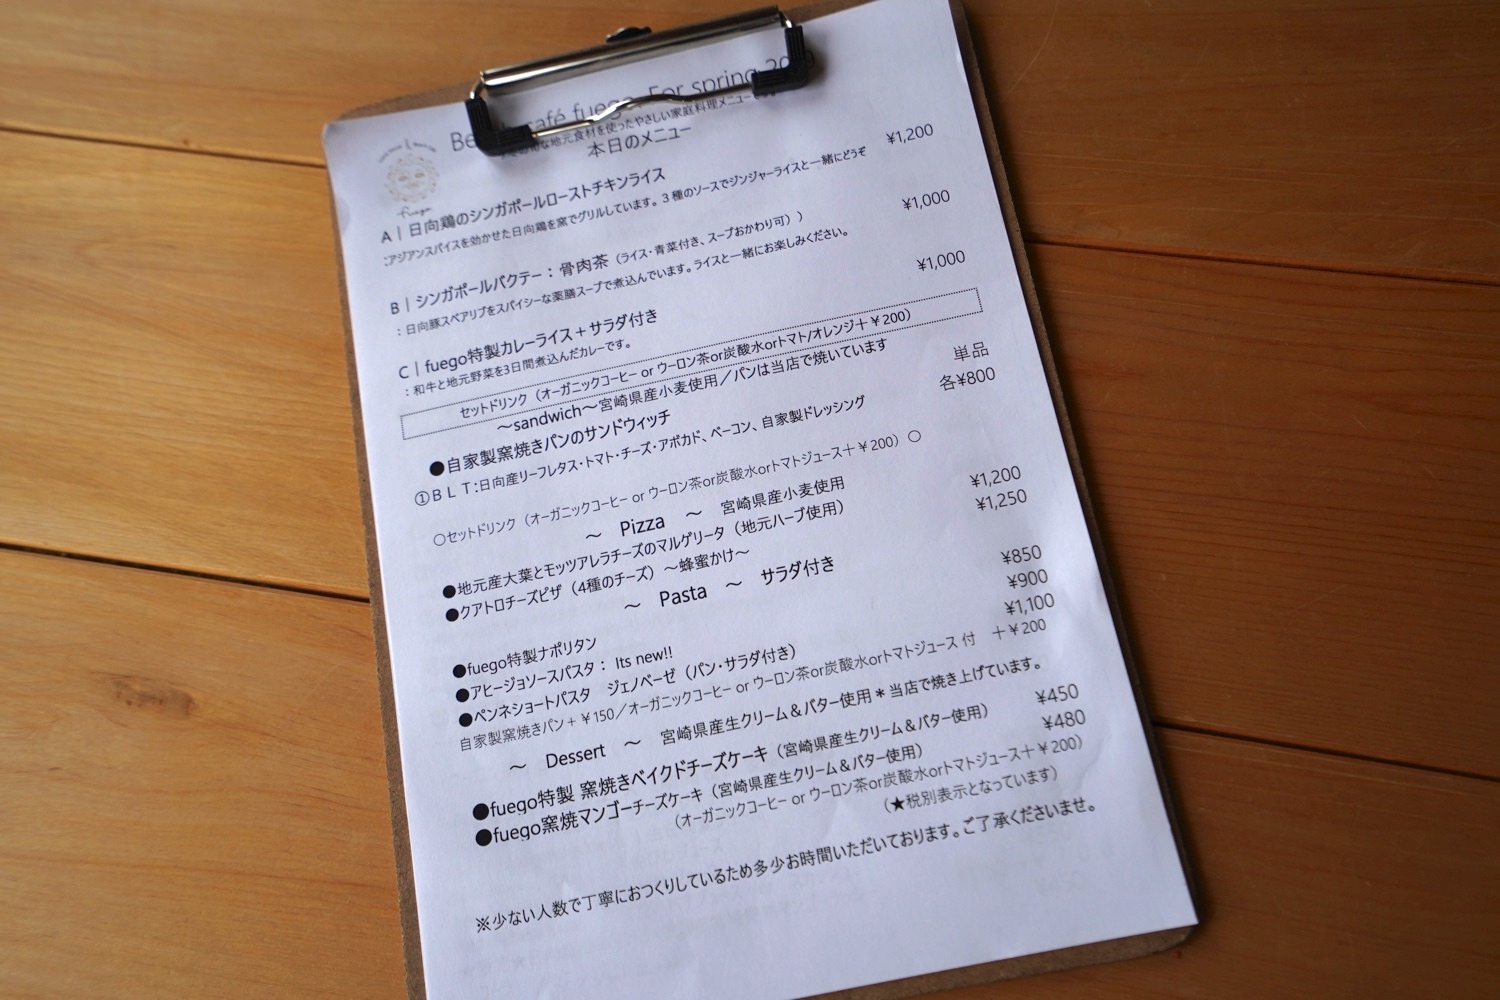 café fuego For spring 20
な地元食材を使ったやさしい家庭料理メニュー
本日のメニュー
fuego
A｜日向鶏のシンガポールローストチキンライス ¥1,200
:アジアンスパイスを効かせた日向鶏を窯でグリルしています。３種のソースでジンジャーライスと一緒にどうぞ
B｜シンガポールバクテー：骨肉茶（ライス・青菜付き、スープおかわり可）） ¥1,000
：日向豚スペアリブをスパイシーな薬膳スープで煮込んでいます。ライスと一緒にお楽しみください。
C｜fuego特製カレーライス＋サラダ付き ¥1,000
：和牛と地元野菜を3日間煮込んだカレーです。
セットドリンク（オーガニックコーヒー or ウーロン茶or炭酸水orトマト/オレンジ＋￥200）
～sandwich～宮崎県産小麦使用／パンは当店で焼いています
●自家製窯焼きパンのサンドウィッチ 単品
①ＢＬＴ:日向産リーフレタス・トマト・チーズ・アボカド、ベーコン、自家製ドレッシング 各¥800
○セットドリンク（オーガニックコーヒー or ウーロン茶or炭酸水orトマトジュース＋￥200）○
～ Pizza ～ 宮崎県産小麦使用
●地元産大葉とモッツアレラチーズのマルゲリータ（地元ハーブ使用） ¥1,200
●クアトロチーズピザ（4種のチーズ）～蜂蜜かけ～ ¥1,250
～ Pasta ～ サラダ付き
●fuego特製ナポリタン ¥850
●アヒージョソースパスタ： Its new!! ¥900
●ペンネショートパスタ ジェノベーゼ（パン・サラダ付き） ¥1,100
自家製窯焼きパン＋￥150／オーガニックコーヒー or ウーロン茶or炭酸水orトマトジュース 付 ＋￥200
～ Dessert ～ 宮崎県産生クリーム＆バター使用＊当店で焼き上げています。
●fuego特製 窯焼きベイクドチーズケーキ（宮崎県産生クリーム＆バター使用） ¥450
●fuego窯焼マンゴーチーズケーキ（宮崎県産生クリーム＆バター使用） ¥480
（オーガニックコーヒー or ウーロン茶or炭酸水orトマトジュース＋￥200）
（★税別表示となっています）
※少ない人数で丁寧におつくりしているため多少お時間いただいております。ご了承くださいませ。